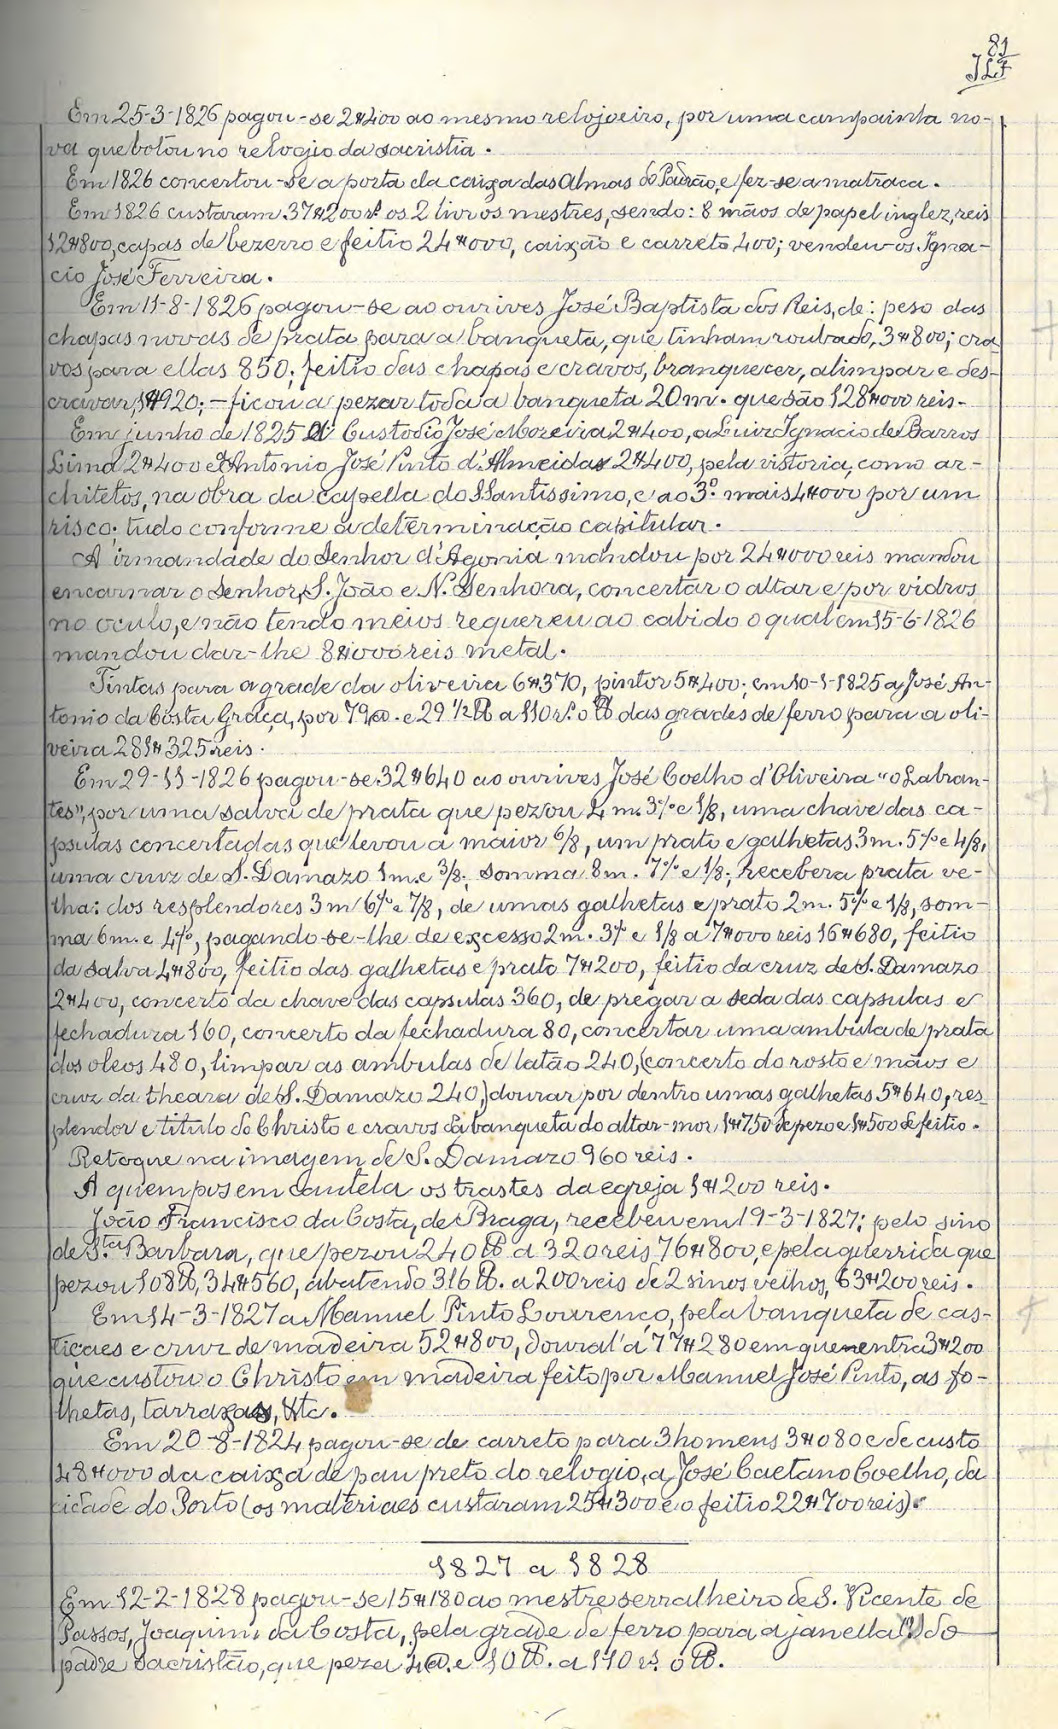 81
JLF
Em 25-3-1826 pagou-se 2$400 ao mesmo relojoeiro, por uma campainha no-
va que botou no relogio da sacristia.
Em 1826 concertou-se a porta da caixa das Almas do Padrão, e fez-se a matraca.
Em 1826 custaram 37$200 rs os 2 livros mestres, sendo: 8 mãos de papel inglez, reis
12$800, capas de bezerro e feitio 24$000, caixão e carreto 400; vendeu-os Igna-
cio José Ferreira.
Em 11-8-1826 pagou-se ao ourives José Baptista dos Reis, de: peso das
chapas novas de prata para a banqueta, que tinham roubado, 3$800; cra-
vos para ellas 850; feitio das chapas e cravos, branquecer, alimpar e des-
cravar, 1$920; - ficou a pezar toda a banqueta 20 m. que são 128$000 reis.
Em junho de 1825 a Custodio José Moreira 2$400, a Luiz Ignacio de Barros
Lima 2$400 e a Antonio José Pinto d'Almeida 2$400, pela vistoria, como ar-
chitetos, na obra da capella do SSantissimo, e ao 3º mais 4$000 por um
risco; tudo conforme a determinação capitular.
A irmandade do Senhor d'Agonia mandou por 24$000 reis mandou
encarnar o Senhor, S. João e N. Senhora, concertar o altar e por vidros
no oculo, e não tendo meios requereu ao cabido o qual em 15-6-1826
mandou dar-lhe 8$000 reis metal.
Tintas para a grade da oliveira 6$370, pintor 5$400; em 10-1-1825 a José An-
tonio da Costa Graça, por 79@. e 29 1/2 ℔ a 110 rs. o ℔ das grades de ferro para a oli-
veira 281$325 reis.
Em 29-11-1826 pagou-se 32$640 ao ourives José Coelho d'Oliveira "o Labran-
tes", por uma salva de prata que pezou 4 m. 3% e 1/8, uma chave das ca-
psulas concertadas que levou a maior 6/8, um prato e galhetas 3 m. 5% e 4/8,
uma cruz de S. Damazo 1 m. e 3/8; somma 8 m. 7% e 1/8; recebera prata ve-
lha: dos resplendores 3 m 6% e 7/8, de umas galhetas e prato 2 m. 5% e 1/8, som-
ma 6 m. e 4%, pagando-se-lhe de excesso 2 m. 3% e 1/8 a 7$000 reis 16$680, feitio
da salva 4$800, feitio das galhetas e prato 7$200, feitio da cruz de S. Damazo
2$400, concerto da chave das capsulas 360, de pregar a seda das capsulas e
fechadura 160, concerto da fechadura 80, concertar uma ambula de prata
dos oleos 480, limpar as ambulas de latão 240, (concerto do rosto e mãos e
cruz da theara de S. Damazo 240,) dourar por dentro umas galhetas 5$640, res-
plendor e titulo do Christo e cravos da banqueta do altar-mor 1$750 de pezo e 1$500 de feitio.
Retoque na imagem de S. Damazo 960 reis.
A quem pos em cautela os trastes da egreja 1$200 reis.
João Francisco da Costa, de Braga, recebeu em 19-3-1827; pelo sino
de Sta Barbara, que pezou 240 ℔ a 320 reis 76$800, e pela guerrida que
pezou 108 ℔, 34$560, abatendo 316 ℔. a 200 reis de 2 sinos velhos, 63$200 reis.
Em 14-3-1827 a Manuel Pinto Lourenço, pela banqueta de cas-
ticaes e cruz de madeira 52$800, doural'a 77$280 em que entra 3$200
que custou o Christo em madeira feito por Manuel José Pinto, as fo-
lhetas, tarraxas, &tc.
Em 20-8-1824 pagou-se de carreto para 3 homens 3$080 e de custo
48$000 da caixa de pau preto do relogio, a José Caetano Coelho, da
cidade do Porto (os materiaes custaram 25$300 e o feitio 22$700 reis).
1827 a 1828
Em 12-2-1828 pagou-se 15$180 ao mestre serralheiro de S. Vicente de
Passos, Joaquim da Costa, pela grade de ferro para a janella (?) do
padre sacristão, que peza 4@. e 10 ℔. a 110 rs. o ℔.